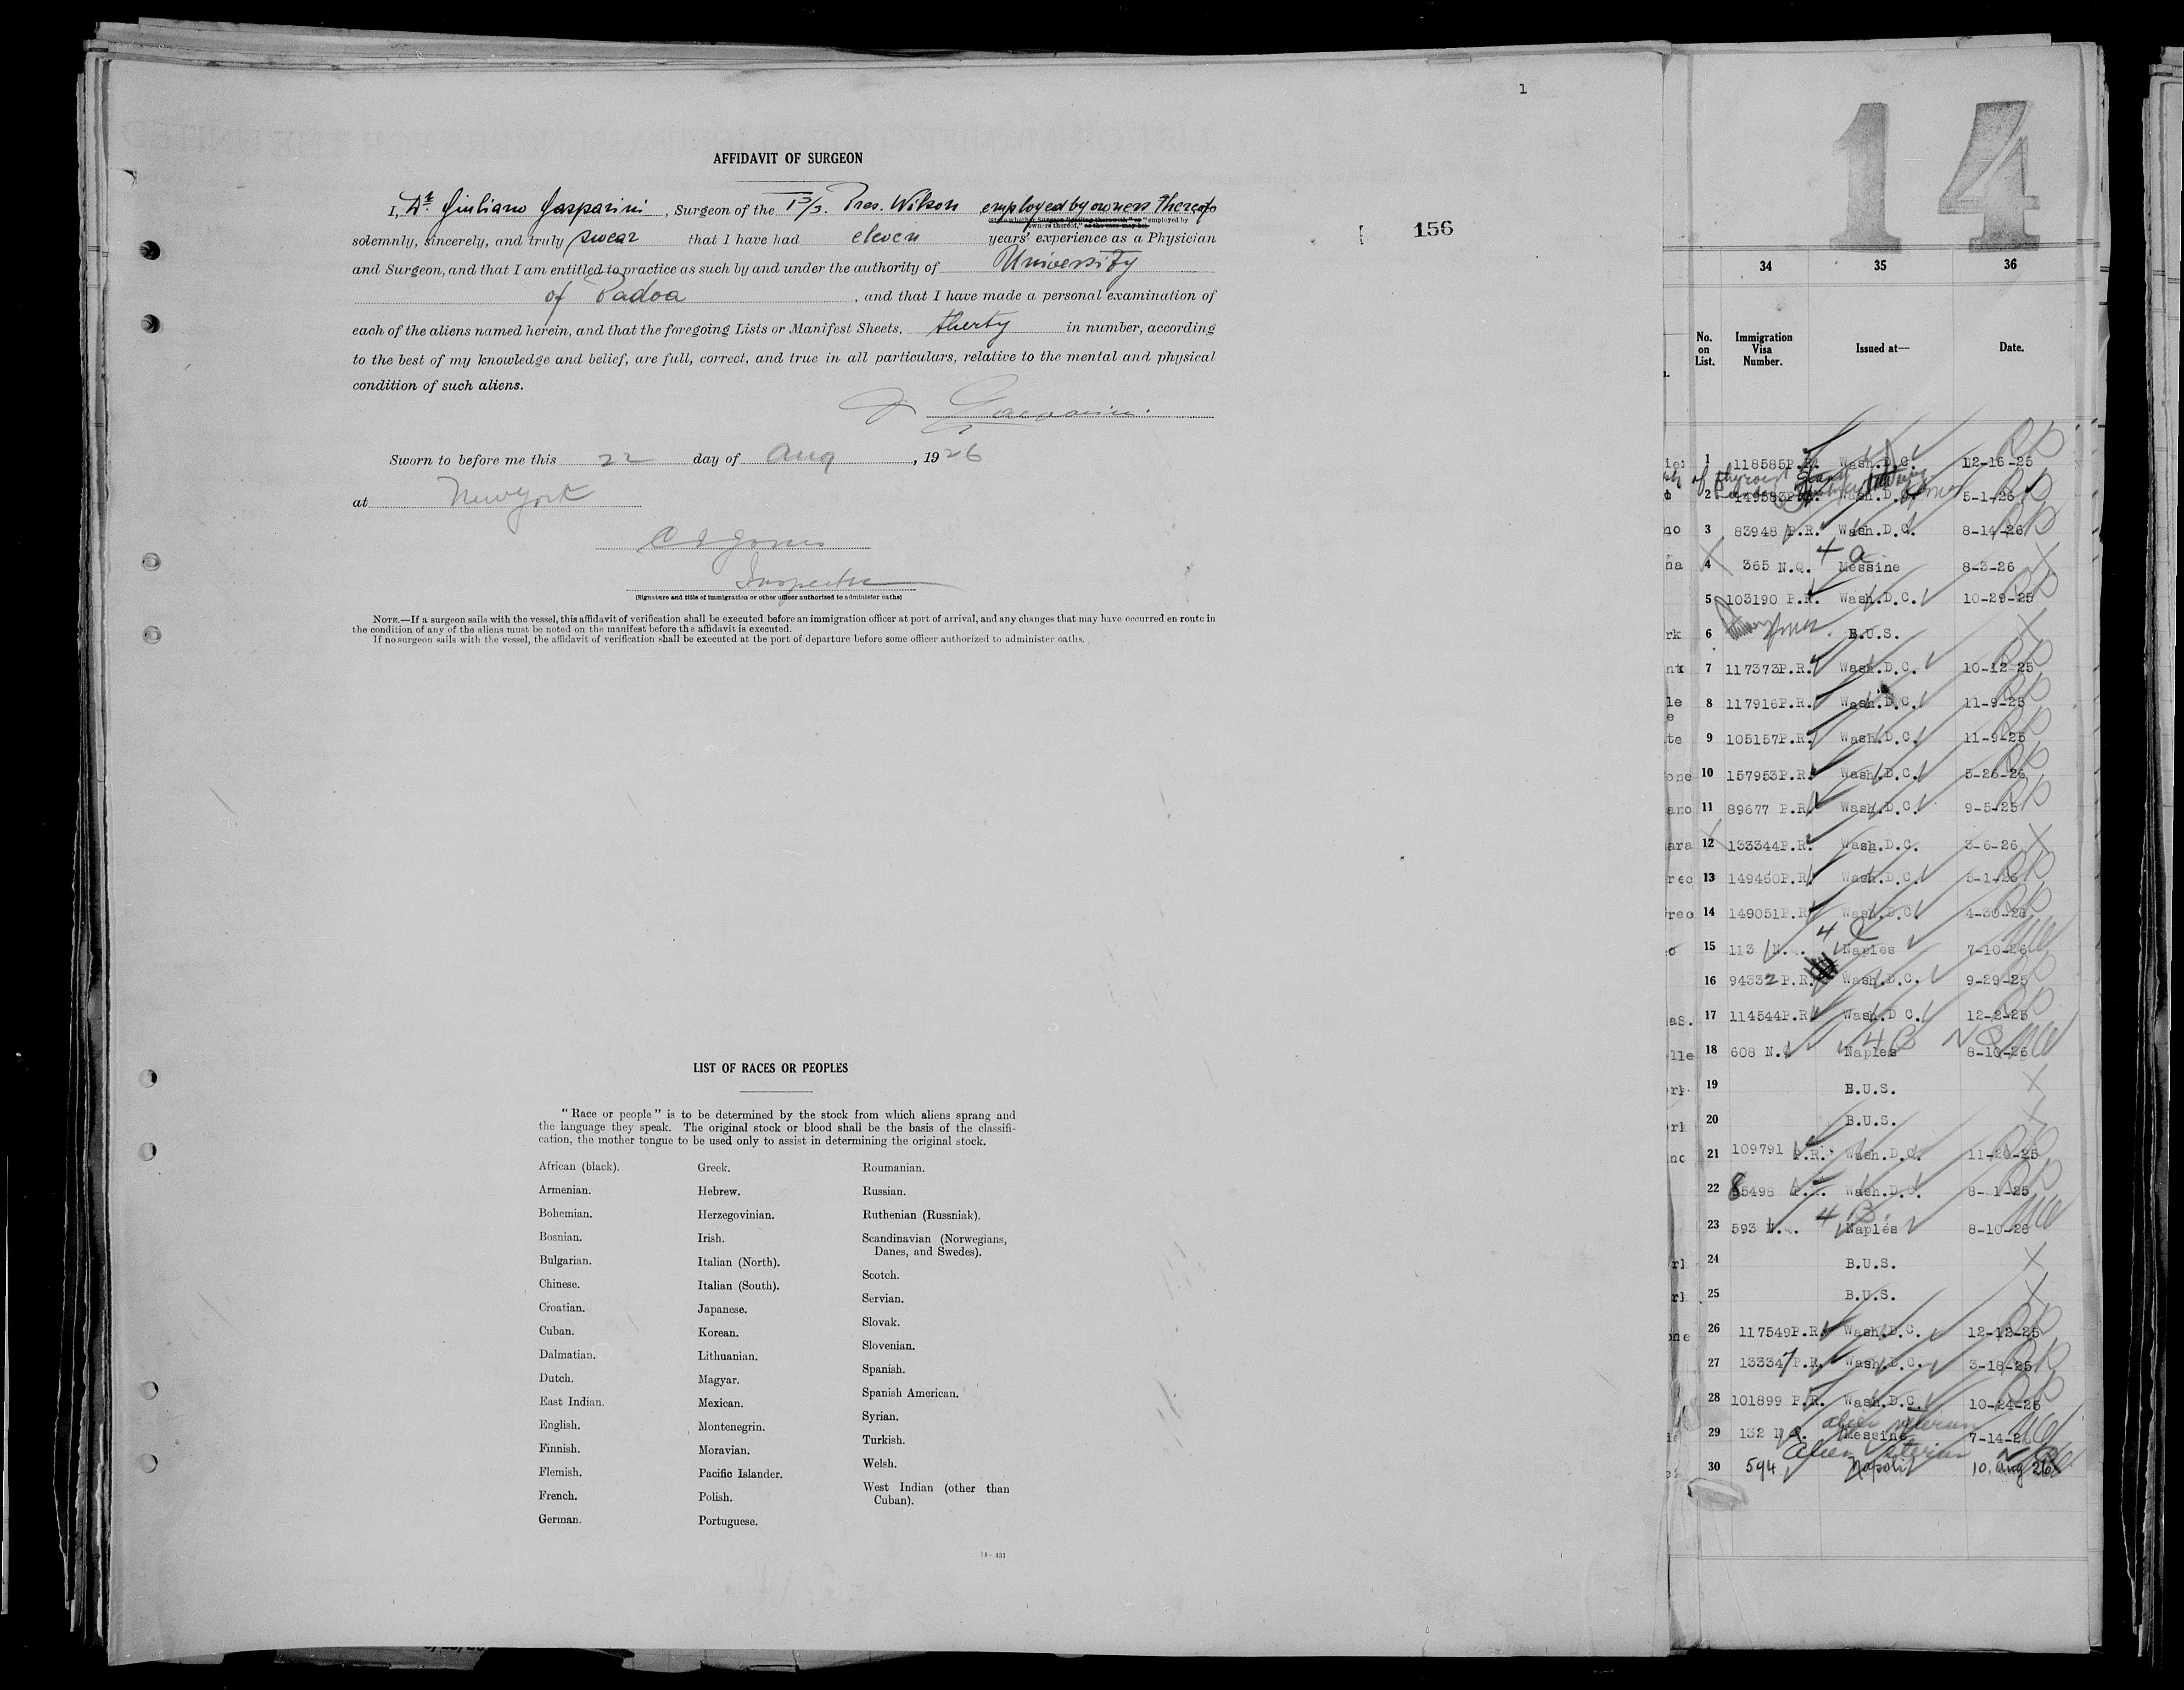 1
AFFIDAVIT OF SURGEON
I, Dr. Giuliano Gasparini, Surgeon of the T S/S. Pres. Wilson employed by owners thereof
solemnly, sincerely, and truly swear that I have had eleven years' experience as a Physician
and Surgeon, and that I am entitled to practice as such by and under the authority of University
of Padoa, and that I have made a personal examination of
each of the aliens named herein, and that the foregoing Lists or Manifest Sheets, therty in number, according
to the best of my knowledge and belief, are full, correct, and true in all particulars, relative to the mental and physical
condition of such aliens.
Gasparini.
Sworn to before me this 22 day of Aug, 1926
at New York
Inspector
(Signature and title of immigration or other officer authorized to administer oaths)
NOTE.—If a surgeon sails with the vessel, this affidavit of verification shall be executed before an immigration officer at port of arrival, and any changes that may have occurred en route in
the condition of any of the aliens must be noted on the manifest before the affidavit is executed.
If no surgeon sails with the vessel, the affidavit of verification shall be executed at the port of departure before some officer authorized to administer oaths.
156
LIST OF RACES OR PEOPLES
"Race or people" is to be determined by the stock from which aliens sprang and
the language they speak. The original stock or blood shall be the basis of the classifi-
cation, the mother tongue to be used only to assist in determining the original stock.
African (black).
Armenian.
Bohemian.
Bosnian.
Bulgarian.
Chinese.
Croatian.
Cuban.
Dalmatian.
Dutch.
East Indian.
English.
Finnish.
Flemish.
French.
German.
Greek.
Hebrew.
Herzegovinian.
Irish.
Italian (North).
Italian (South).
Japanese.
Korean.
Lithuanian.
Magyar.
Mexican.
Montenegrin.
Moravian.
Pacific Islander.
Polish.
Portuguese.
Roumanian.
Russian.
Ruthenian (Russniak).
Scandinavian (Norwegians,
Danes, and Swedes).
Scotch.
Servian.
Slovak.
Slovenian.
Spanish.
Spanish American.
Syrian.
Turkish.
Welsh.
West Indian (other than
Cuban).
14—431
14
34 35 36
No. on List. Immigration Visa Number. Issued at— Date.
1 118585P.R. Wash.D.C. 12-16-25
2 149583P.R. Wash.D.C. 5-1-26
3 83948 P.R. Wash.D.C. 8-14-26
4 365 N.Q. Messine 8-3-26
5 103190 P.R. Wash.D.C. 10-29-25
6 B.U.S.
7 117373P.R. Wash.D.C. 10-12-25
8 117916P.R. Wash.D.C. 11-9-25
9 105157P.R. Wash.D.C. 11-9-25
10 157953P.R. Wash.D.C. 5-26-26
11 89677 P.R. Wash.D.C. 9-5-25
12 133344P.R. Wash.D.C. 3-6-26
13 149460P.R. Wash.D.C. 5-1-26
14 149051P.R. Wash.D.C. 4-30-26
15 113 N. Naples 7-10-26
16 94332 P.R. Wash.D.C. 9-29-25
17 114544P.R. Wash.D C. 12-2-25
18 608 N.Q Naples 8-10-26
19 B.U.S.
20 B.U.S.
21 109791 P.R. Wash.D.C. 11-20-25
22 85498 P.R. Wash.D.C. 8-1-25
23 593 N.Q. Naples 8-10-26
24 B.U.S.
25 B.U.S.
26 117549P.R. Wash.D.C. 12-12-25
27 133347 P.R. Wash.D.C. 3-18-26
28 101899 P.R. Wash.D.C. 10-24-25
alien veteran
29 132 N.Q. Messine 7-14-26
Alien veteran
30 594 Napoli 10. Aug 26